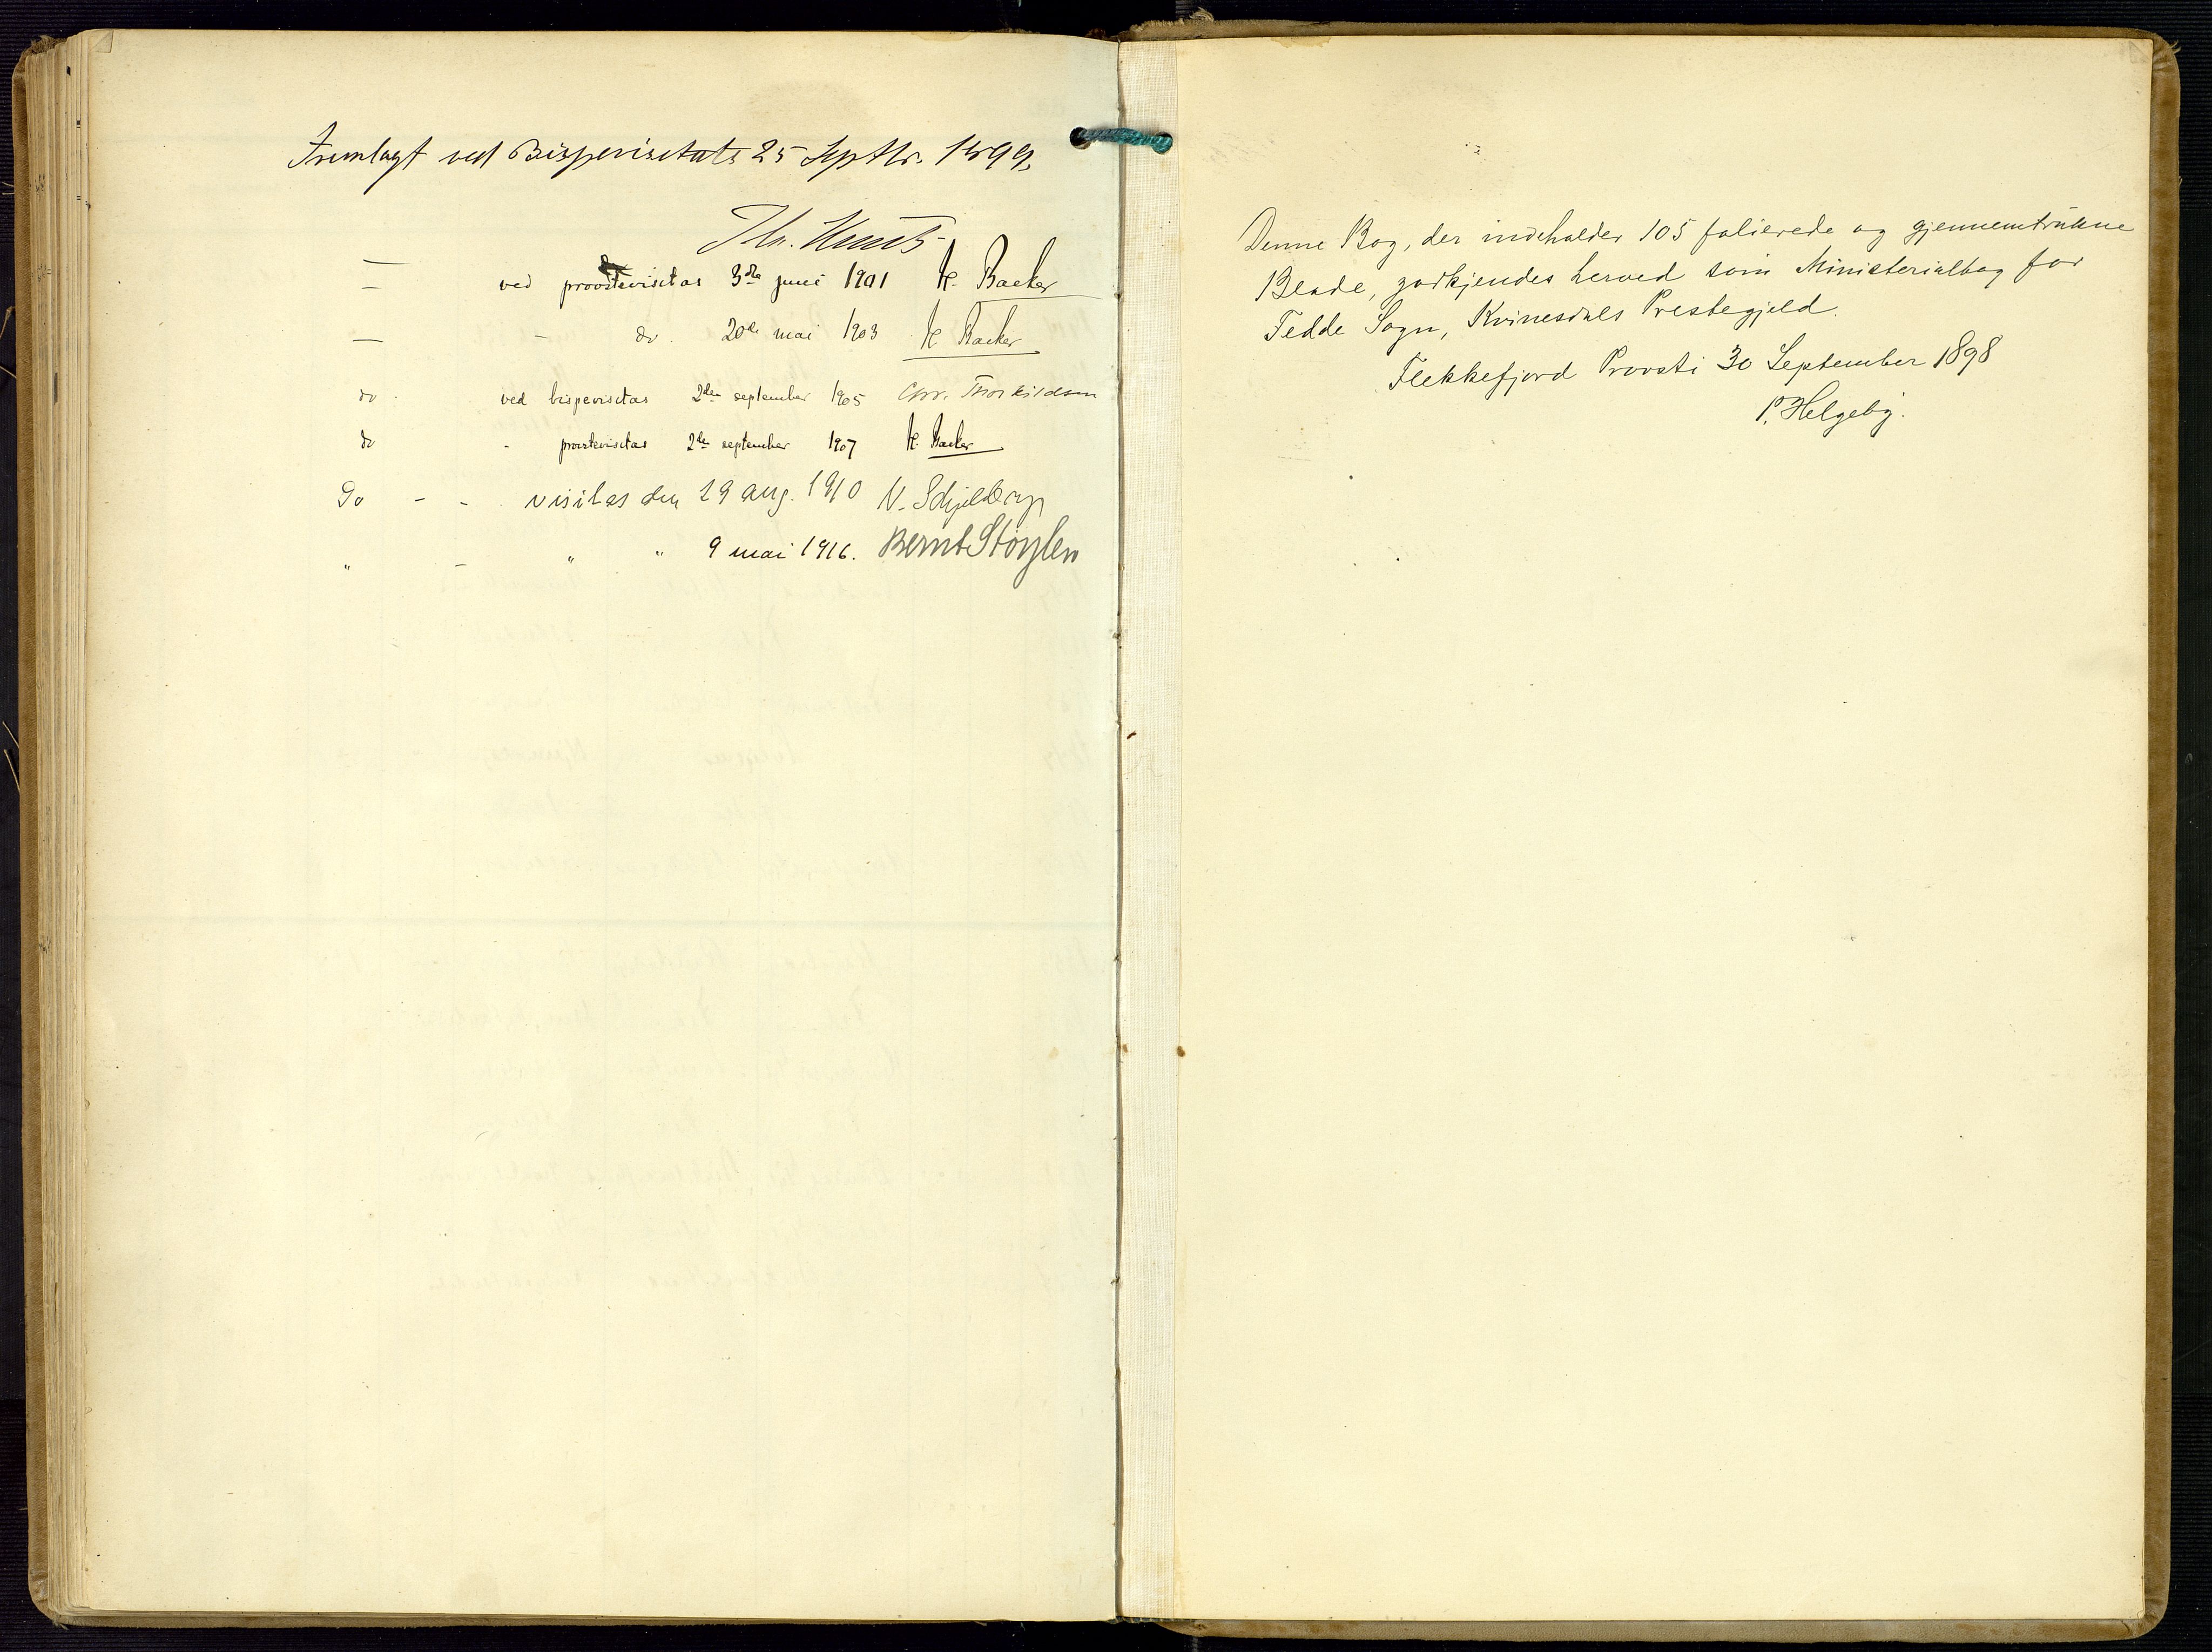 Fremlagt ved Bispevisitats 25 Septbr. 1899.
— ved provstevisitas 3die juni 1901 H. Backer
— - do. 20de mai 1903 H Backer
do. ved bispevisitas 2den september 1905 Chr. Thorkildsen
do - provstevisitas 2de september 1907 H. Backer
Do - - visitas den 29 aug. 1910 K. Schjelderup
" - " " 9 mai 1916. Bernt Støylen
Denne Bog, der indeholder 105 folierede og gjennemtrukne
Blade, godkjendes herved som Ministerialbog for
Fedde Sogn, Kvinesdals Prestegjeld.
Flekkefjord Provsti 30 September 1898
P. Helgeby.